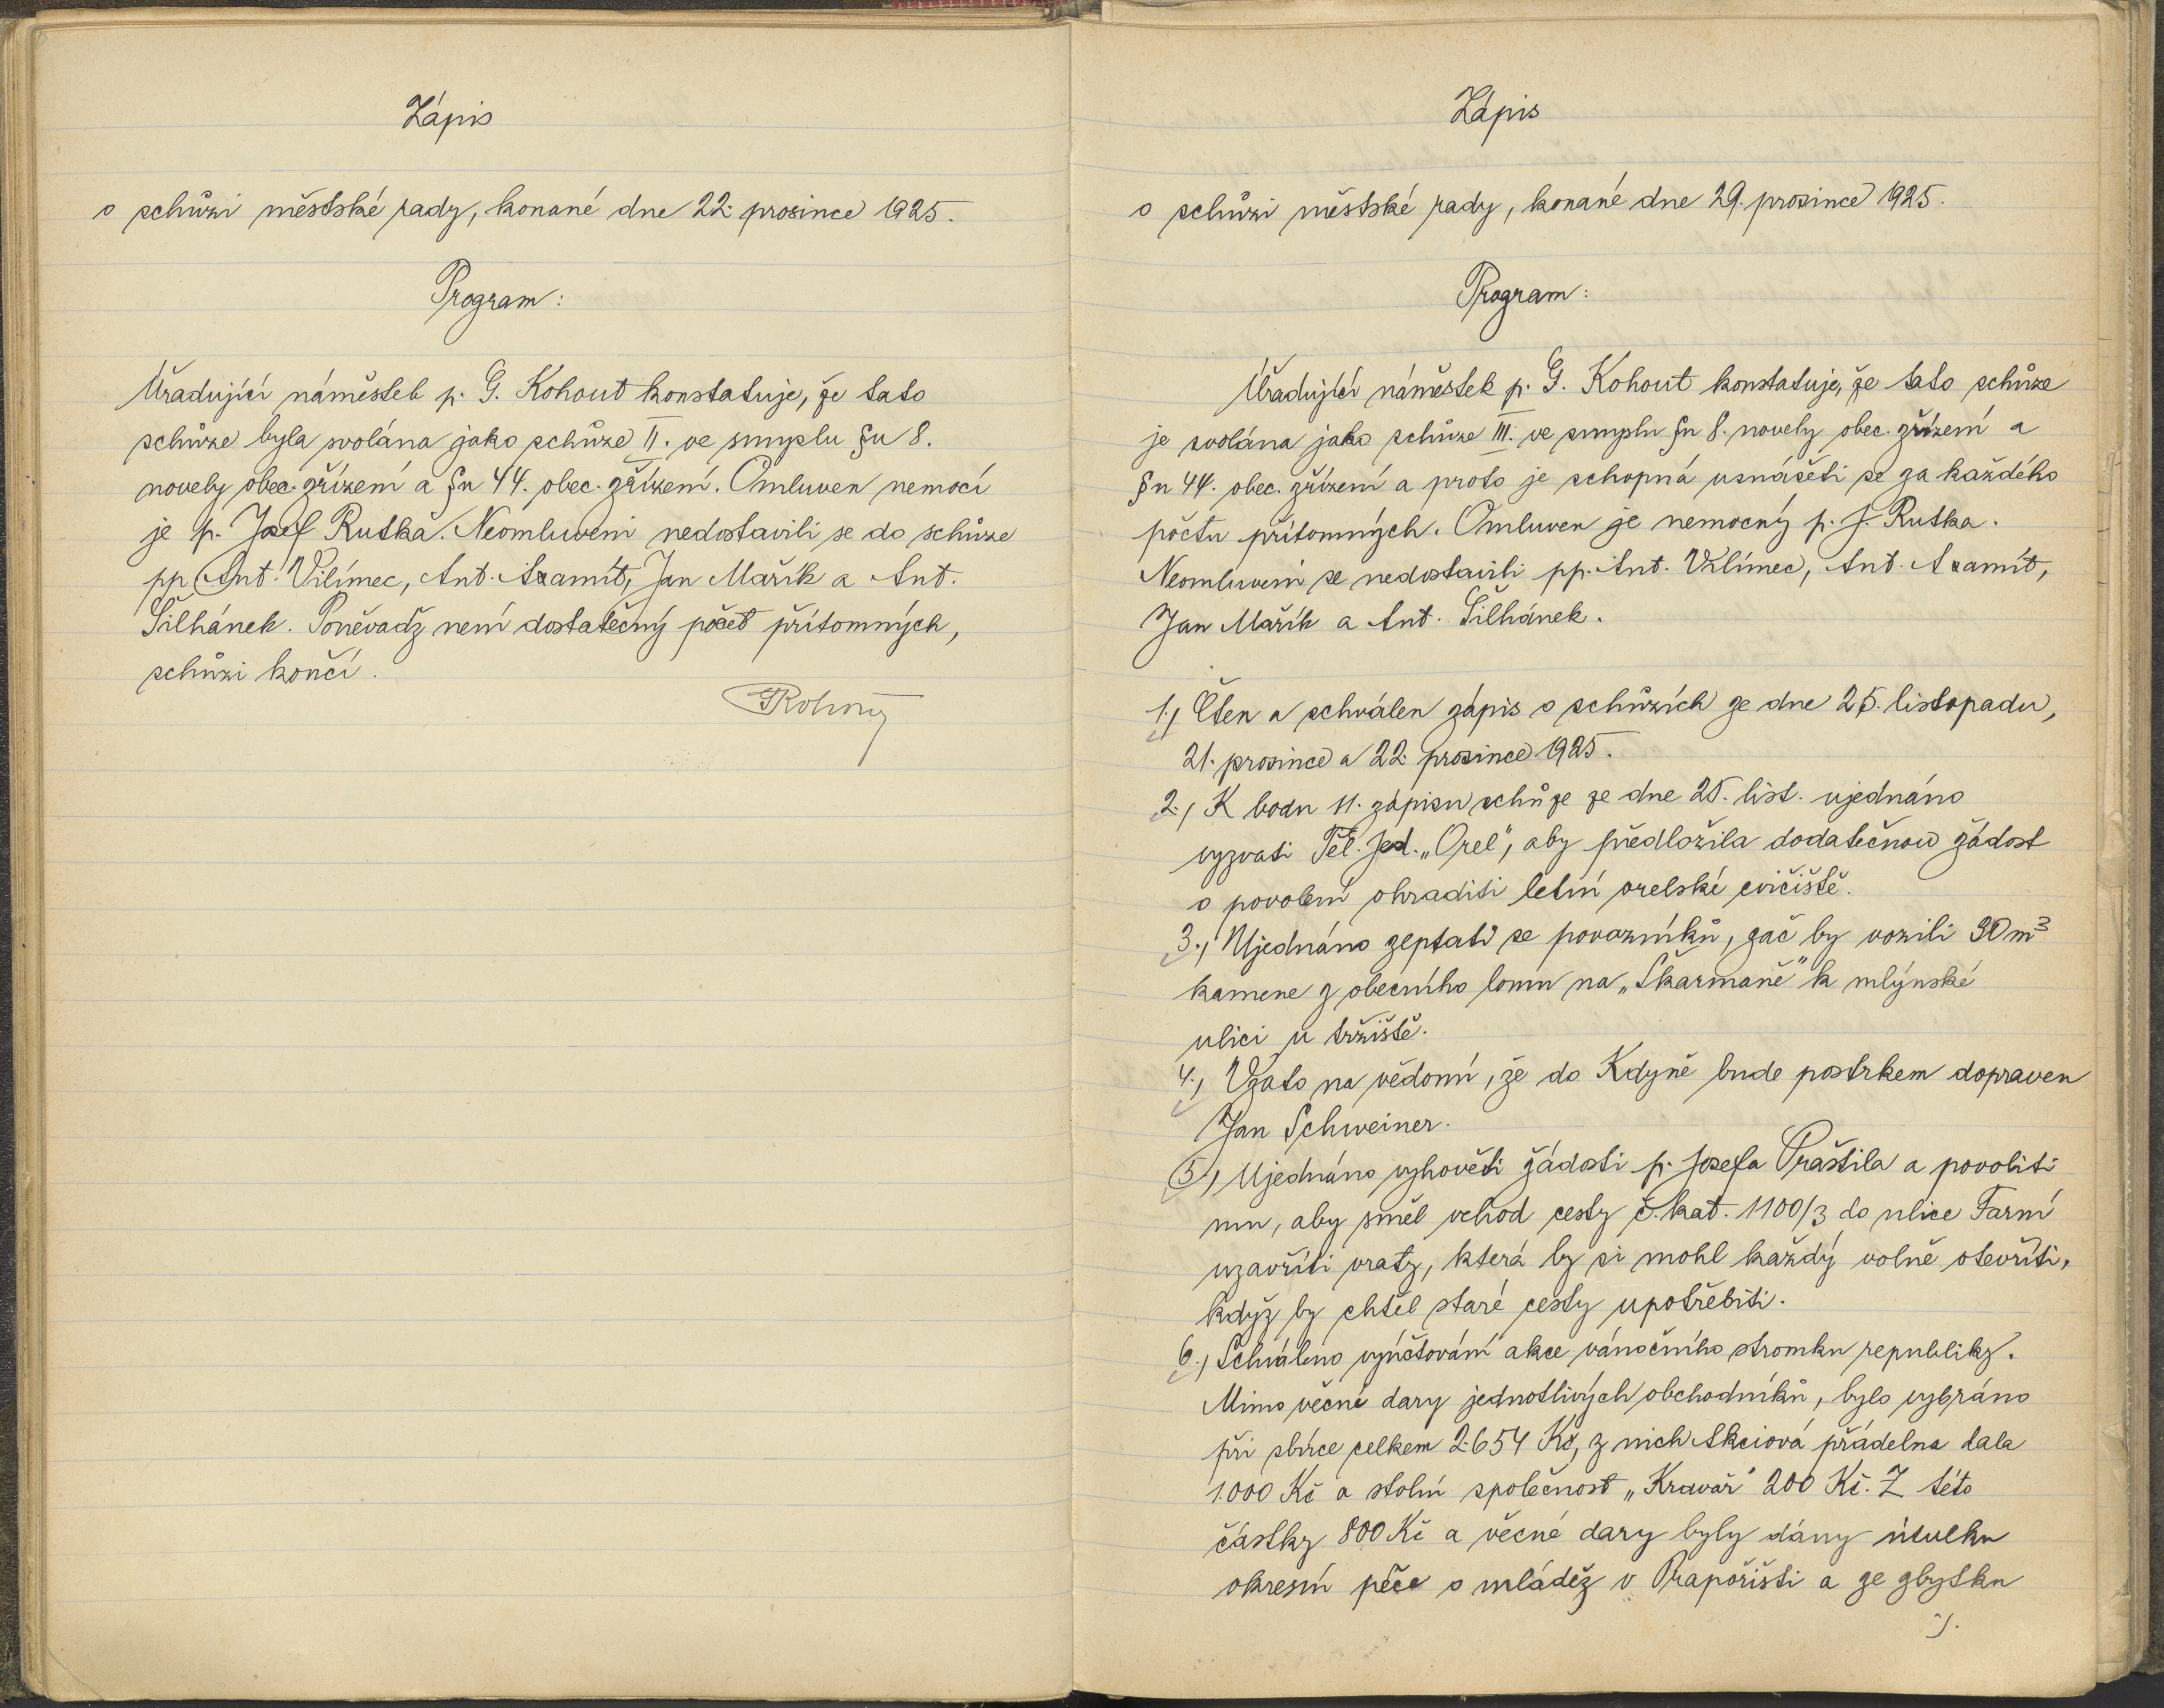 Zápis
o schůzi městské rady, konané dne 22. prosince 1925.
Program:
Úřadující náměstek p. G. Kohout konstatuje, že tato
schůze byla svolána jako schůze II. ve smyslu §u 8.
novely obec. zřízení a §u 44. obec. zřízení. Omluven nemocí
je p. Josef Rutka. Neomluveni nedostavili se do schůze
pp. Ant. Vilímec, Ant. Axamit, Jan Mařík a Ant.
Šilhánek. Poněvadž není dostatečný počet přítomných,
schůzi končí.
Zápis
o schůzi městské rady, konané dne 29. prosince 1925.
Program:
Úřadující náměstek p. G. Kohout konstatuje, že tato schůze
je svolána jako schůze III. ve smyslu §u 8. novely obec. zřízení a
§u 44. obec. zřízení a proto je schopná usnášeti se za každého
počtu přítomných. Omluven je nemocný p. J. Rutka.
Neomluveni se nedostavili pp. Ant. Vilímec, Ant. Axamit,
Jan Mařík a Ant. Šilhánek.
1., Čten a schválen zápis o schůzích ze dne 25. listopadu,
21. prosince a 22. prosince 1925.
2., K bodu 11. zápisu schůze ze dne 25. list. ujednáno
vyzvati Těl. Jed. „Orel", aby předložila dodatečnou žádost
o povolení ohraditi letní orelské cvičiště.
3., Ujednáno zeptati se povozníků, zač by vozili 30 m³
kamene z obecního lomu na „Škarmaně" k mlýnské
ulici u tržiště.
4., Vzato na vědomí, že do Kdyně bude postrkem dopraven
Jan Schweiner.
5., Ujednáno vyhověti žádosti p. Josefa Praštila a povoliti
mu, aby směl vchod cesty č. kat. 1100/3 do ulice Farní
uzavříti vraty, která by si mohl každý volně otevříti,
když by chtěl staré cesty upotřebiti.
6., Schváleno vyúčtování akce vánočního stromku republiky.
Mimo věcné dary jednotlivých obchodníků, bylo vybráno
při sbírce celkem 2.654 Kč, z nich Akciová přádelna dala
1.000 Kč a stolní společnost „Kravař" 200 Kč. Z této
částky 800 Kč a věcné dary byly dány útulku
okresní péče o mládež v Prapořišti a ze zbytku